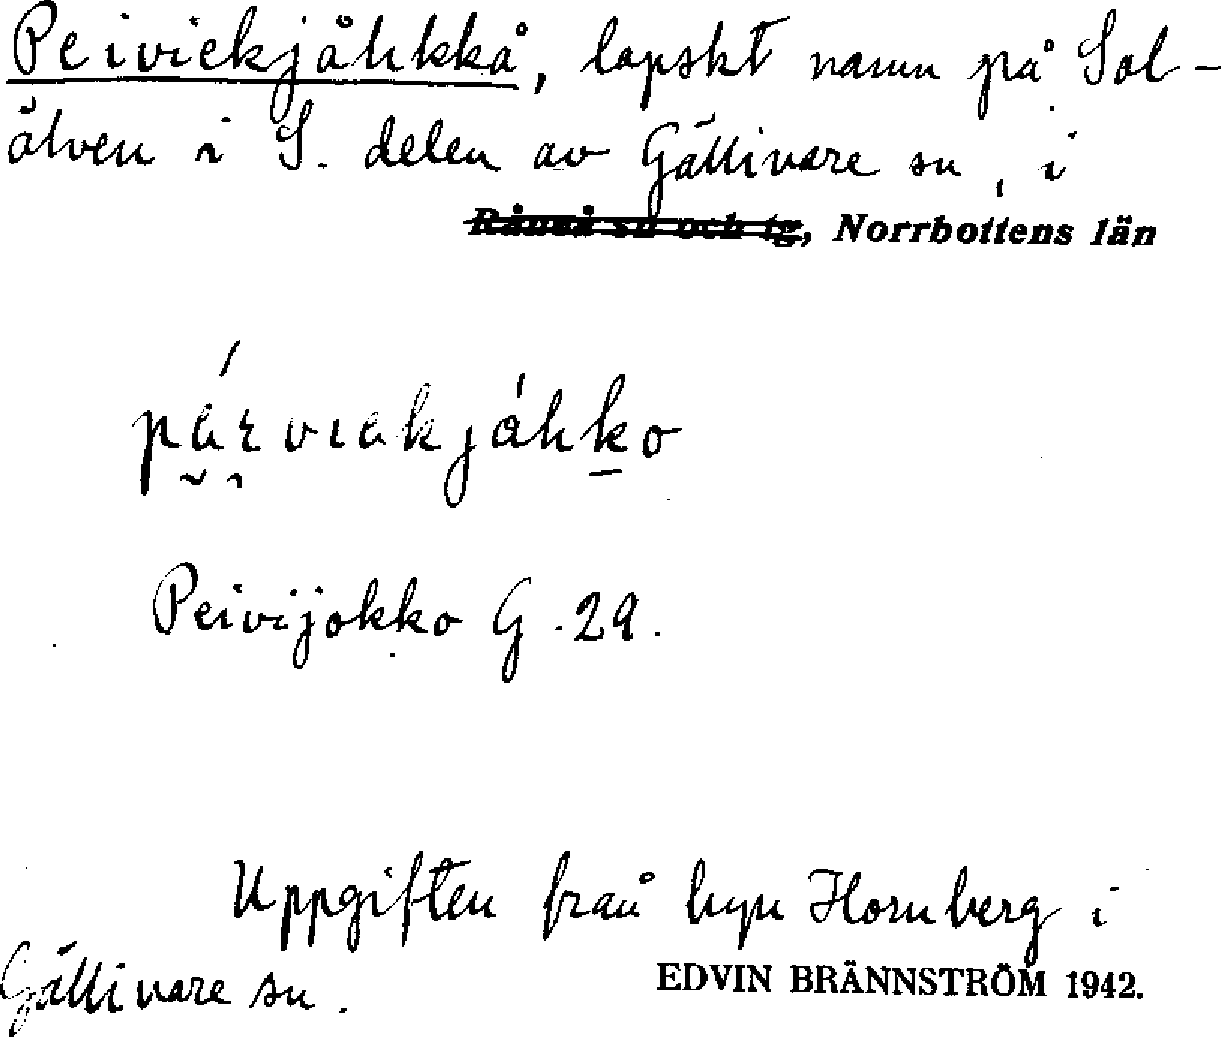 Peiviekjåhkkå, lapskt namn på Sol-
älven i S. delen av Gällivare sn, i
Råneå sn och tg, Norrbottens län
Peivijokko G. 29.
Uppgiften från byn Hornberg i
Gällivare sn.
EDVIN BRÄNNSTRÖM 1942.